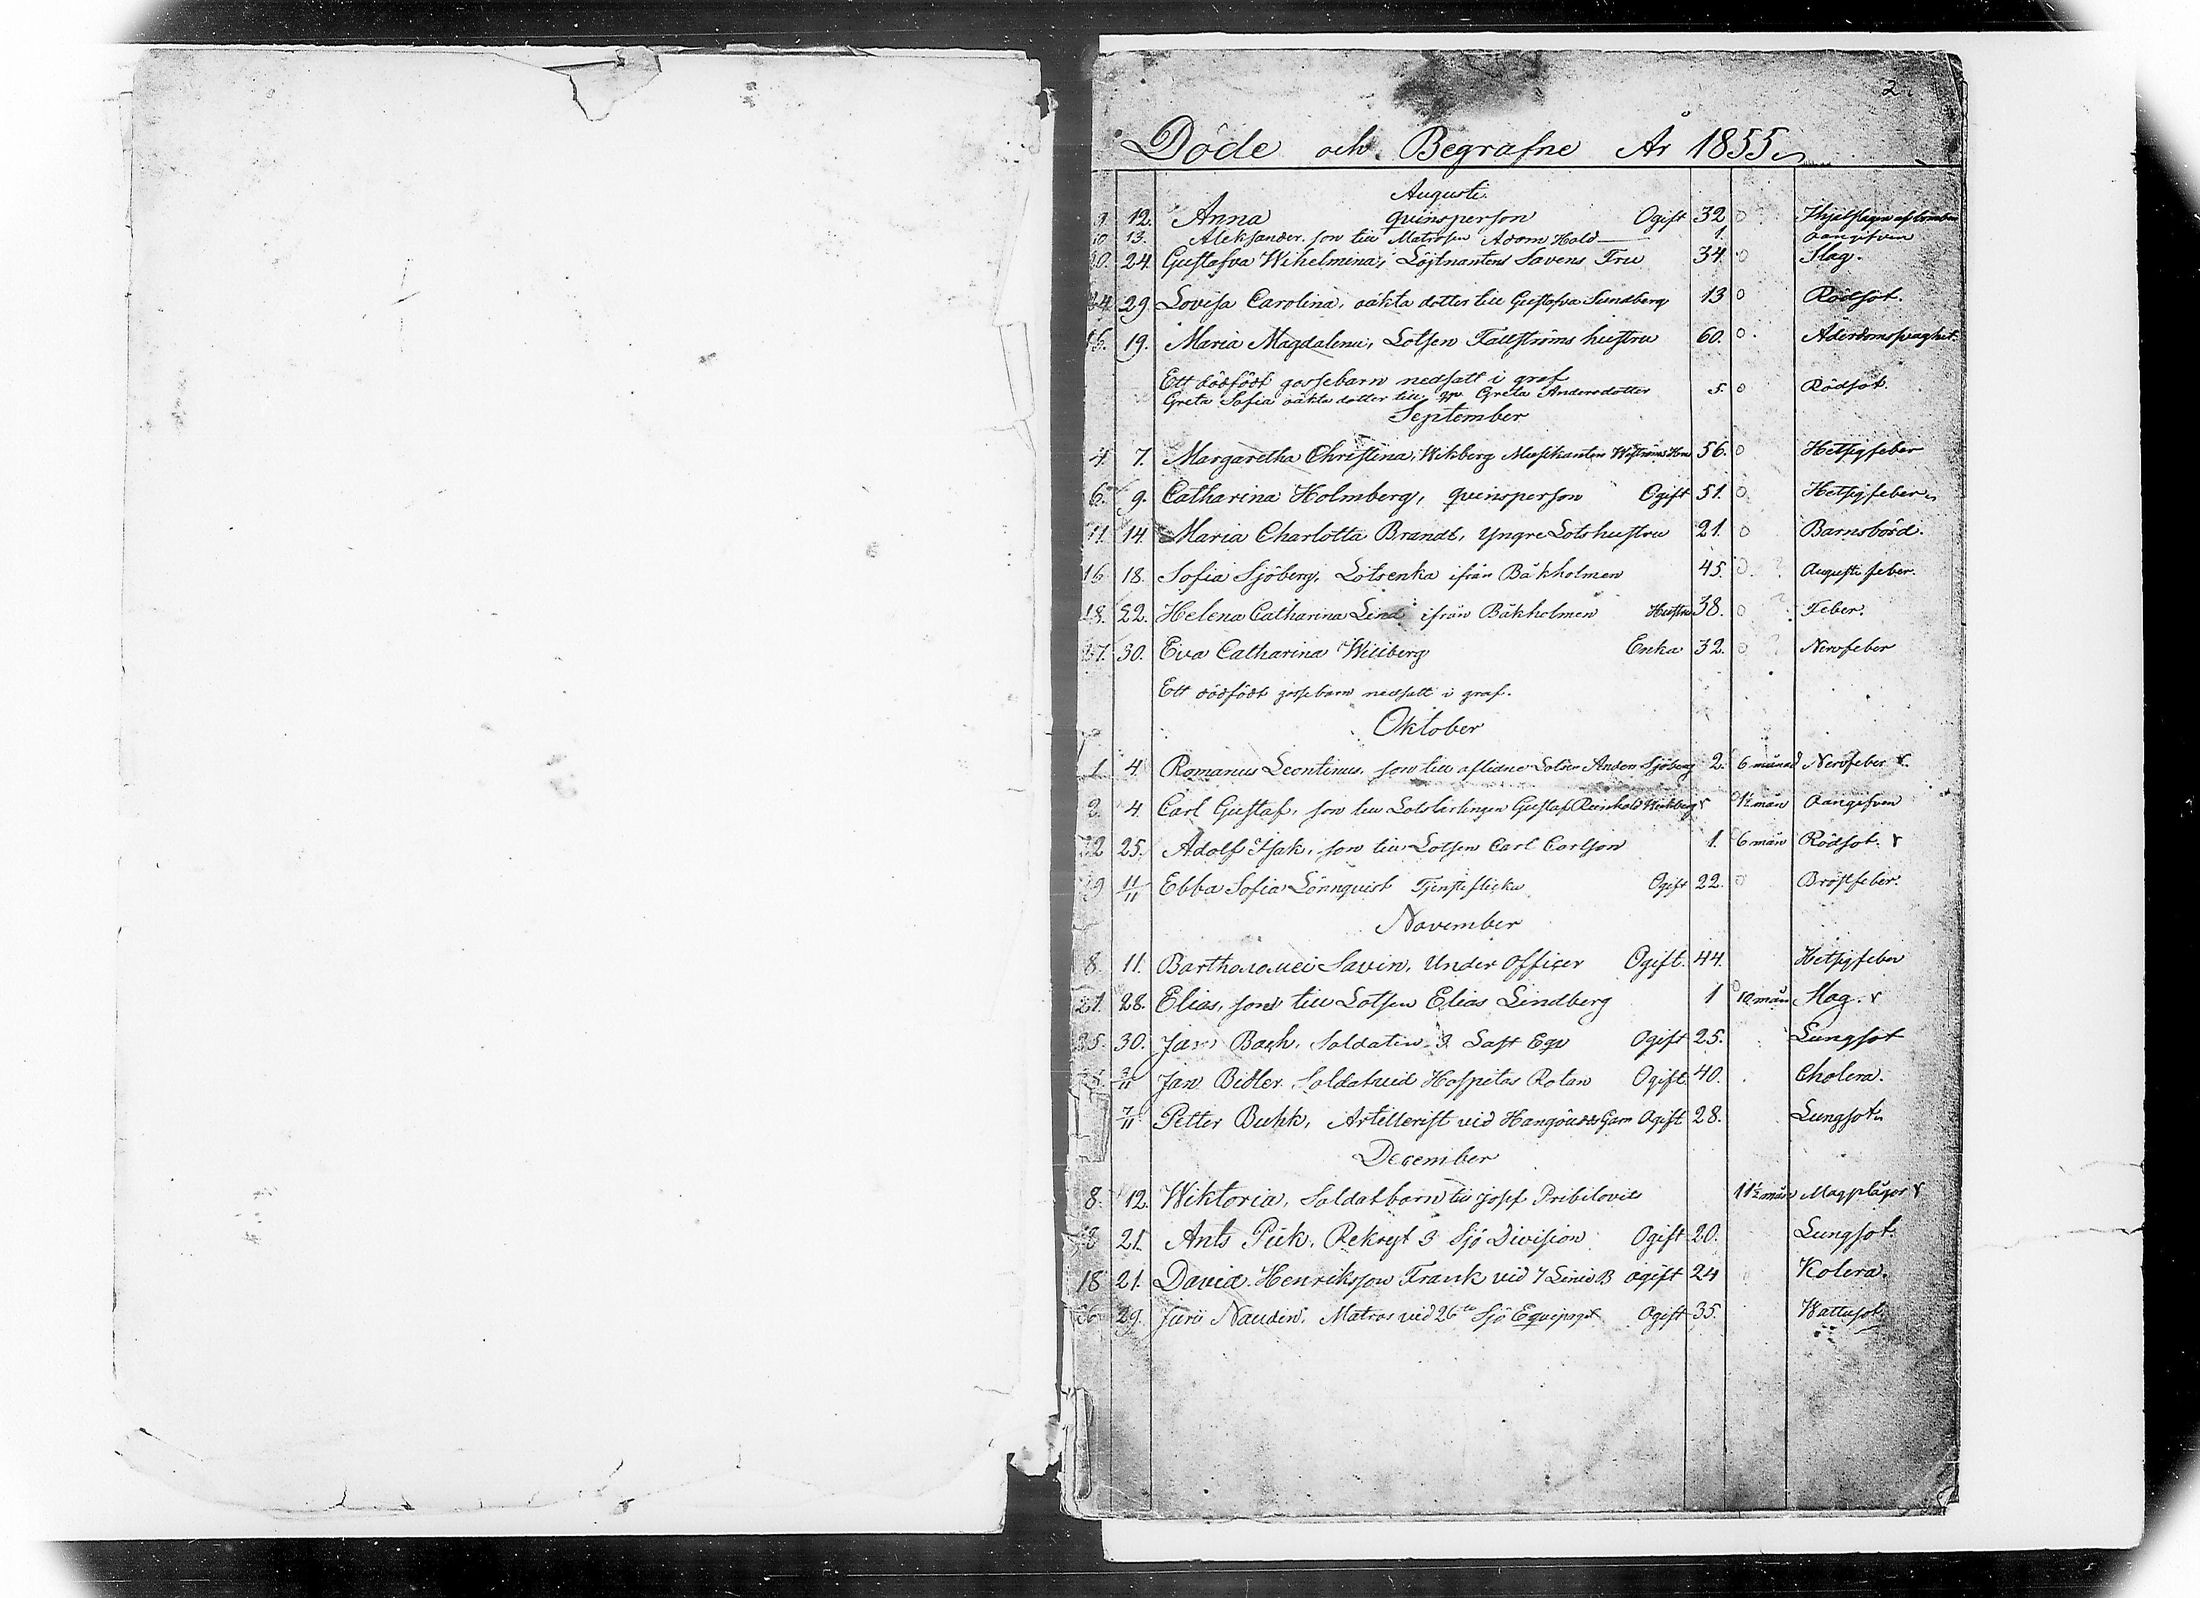 2.
Döde och Begrafne År 1855.
Augusti.
9. 12. Anna qvinsperson Ogift 32 0 Ihjälslagen af bomben
10 13. Aleksander. son till Matrosen Adam Hold 1. oangifven
20. 24. Gustafva Wihelmina, Löjtnantens Savens Fru 34 0 Slag.
24 29. Lovisa Carolina, oäkta dotter till Gustafva Sundberg 13 0 Rödsot.
16. 19. Maria Magdalena, Lotsen Fallströms hustru 60. 0. Ålderdomsvaghet.
Ett dödfödt gossebarn nedsatt i graf
Greta Sofia oäkta dotter till Greta Andersdotter 5. 0 Rödsot.
September
4. 7. Margaretha Christina, Wikberg Musikanten 56. 0 Hetsigfeber
6. 9. Catharina Holmberg, qvinsperson Ogift 51. 0 Hetsigfeber
11. 14. Maria Charlotta Brandt, Yngre Lotshustru 21. 0 Barnsbörd.
16 18. Sofia Sjöberg, Lotsenka ifrån Bäkholmen 45. 0. ? Augusti feber.
18. 22. Helena Catharina Lind ifrån Bäkholmen Hustru 38. 0 ? Feber.
27. 30. Eva Catharina Williberg Enka 32. 0 ? Nervfeber
Ett dödfödt gossebarn nedsatt i graf.
Oktober
1 4 Romanus Leontinus, son till aflidne Lotsen Anders Sjöberg 2. 6 månad Nervfeber
2. 4. Carl Gustaf, son till Lotslärlingen Gustaf Reinhold Wickberg 1½ mån Oangifven
22 25. Adolf Isak, son till Lotsen Carl Carlson 1. 6 mån Rödsot.
29 11/11 Ebba Sofia Lönnqvist Tjensteflicka Ogift 22. 0 Bröstfeber.
November
8. 11. Bartholomei Savin, Under Officer Ogift. 44. Hetsigfeber
21. 28. Elias, son till Lotsen Elias Lindberg 1 10 mån Slag.
25. 30. Jan Bach, Soldaten 3 Last Eqv Ogift 25. Lungsot
3/11 Jan Bidler Soldat vid Hospitas Rotan Ogift. 40. Cholera.
7/11 Petter Buhk, Artillerist vid Hangöudds Garn Ogift 28. Lungsot.
December
8. 12. Wiktoria, Soldatbarn till Josef Pribilovic 11½ mån Magplågor
18 21. Ants Piik, Rekryt 3 Sjö Division Ogift 20. Lungsot.
18 21. David Henriksson Frank vid 7 Linie B ogift 24 Kolera.
26 29. Jarii Naudin, Matros vid 26te Sjö Eqvipaget Ogift 35. Wattusot.